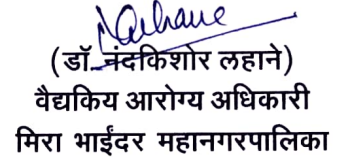 (डॉ. नंदकिशोर लहाने)
वैद्यकिय आरोग्य अधिकारी
मिरा भाईंदर महानगरपालिका